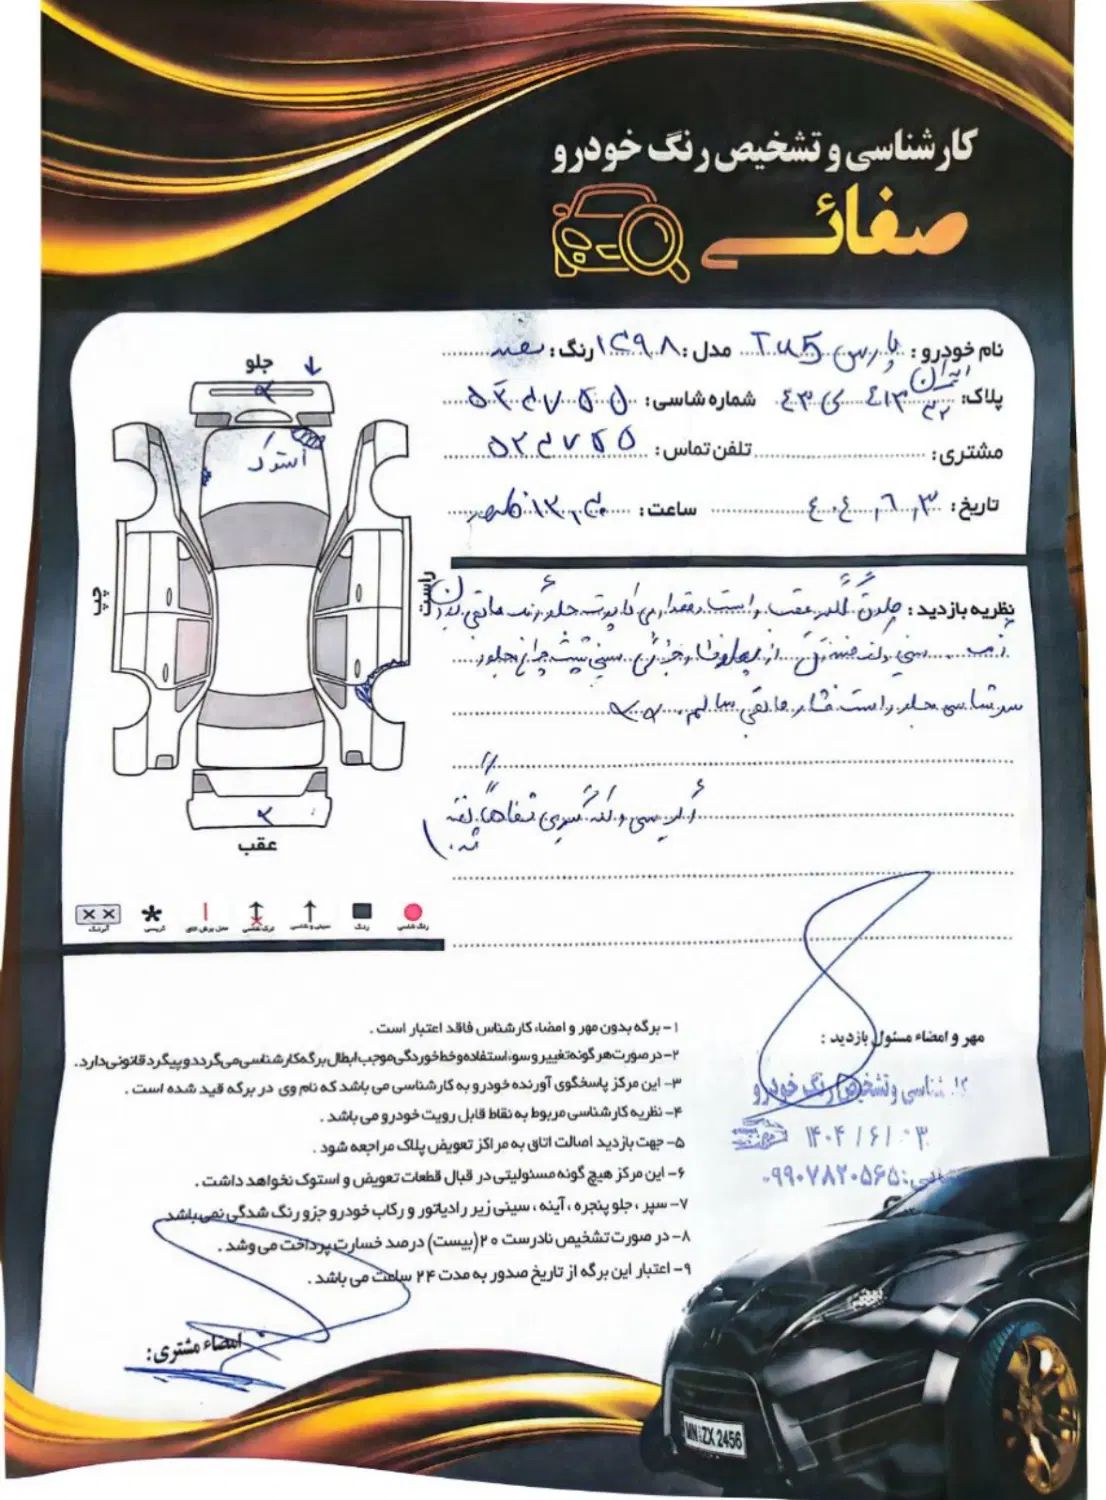 کارشناسی و تشخیص رنگ خودرو
صفائی
نام خودرو : پارس TU5 مدل : ۱۳۹۸ رنگ : سفید
پلاک : ایران
شماره شاسی :
مشتری : تلفن تماس :
تاریخ : ۴۰۴٫۶٫۳ ساعت : ظهر
جلو
استوک
چپ
راست
عقب
نظریه بازدید : گلگیر عقب راست مقداری کاپوت جلو رنگ مابقی بدون
رنگ سینی
سرشاسی جلو راست فشار مابقی سالم
شفاهاً گفته
شد
رنگ شاسی
رنگ
سینی و شاسی
ترک شاسی
محل برش اتاق
کرپسی
آبرنگ
۱- برگه بدون مهر و امضاء کارشناس فاقد اعتبار است .
۲- در صورت هر گونه تغییر و سوء استفاده و خط خوردگی موجب ابطال برگه کارشناسی می گردد و پیگرد قانونی دارد .
۳- این مرکز پاسخگوی آورنده خودرو به کارشناسی می باشد که نام وی در برگه قید شده است .
۴- نظریه کارشناسی مربوط به نقاط قابل رویت خودرو می باشد .
۵- جهت بازدید اصالت اتاق به مراکز تعویض پلاک مراجعه شود .
۶- این مرکز هیچ گونه مسئولیتی در قبال قطعات تعویض و استوک نخواهد داشت .
۷- سپر ، جلو پنجره ، آینه ، سینی زیر رادیاتور و رکاب خودرو جزو رنگ شدگی نمی باشد
۸- در صورت تشخیص نادرست ۲۰ (بیست) درصد خسارت پرداخت می وشد .
۹- اعتبار این برگه از تاریخ صدور به مدت ۲۴ ساعت می باشد .
امضاء مشتری :
مهر و امضاء مسئول بازدید :
کارشناسی و تشخیص رنگ خودرو
۱۴۰۴ / ۶ / ۰۳
۰۹۹۰۷۸۲۰۵۶۵
MN ZX 2456